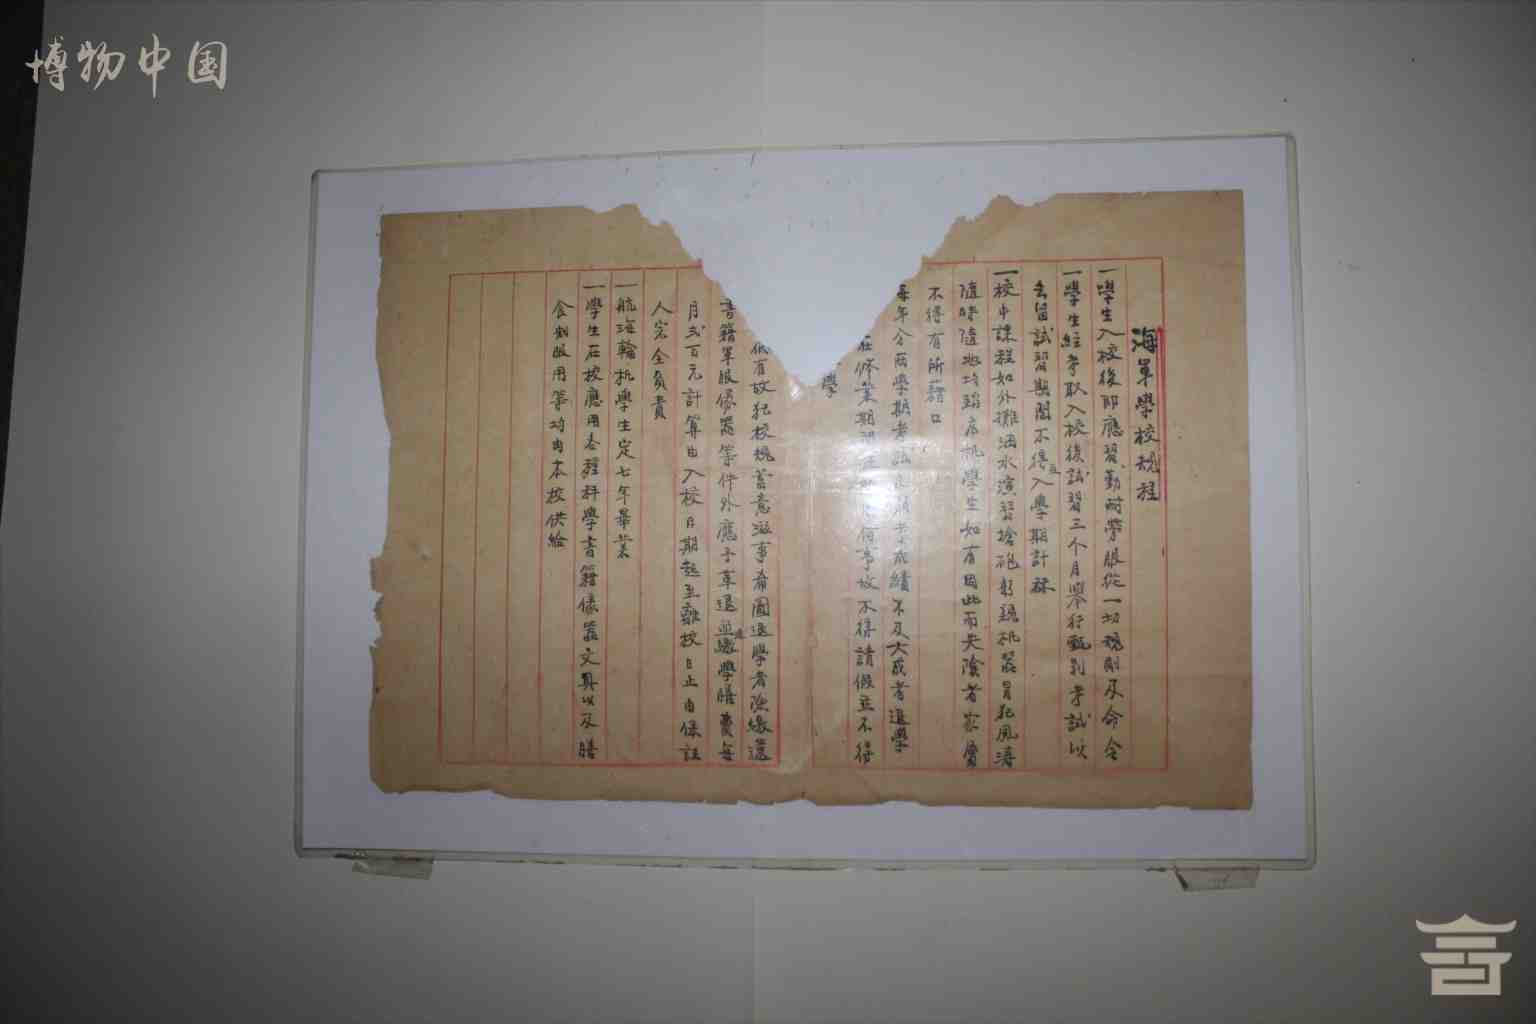 博物中国
海軍學校規程
一學生入校後即應習勤耐勞服從一切規則及命令
一學生經考取入校後試習三个月舉行甄别考試以
去留試習期間不得在入學期計祘
一校中課程如外攤泅水演習搶砲躬親机器冒犯風濤
隨時隨地均 机學生如有因此而失險者家屬
不得有所藉口
每年分両學期考試 成績不及大成者退學
在修業期 何事故不得請假並不得
學
低有故犯校規蓄意滋事希圖退學者除繳還
書籍軍服儀器等件外應予革退並追繳學膳費每
月弍百元計算由入校日期起至離校日止由保証
人完全負責
一航海輪机學生定七年畢業
一學生在校應用各種科學書籍儀器文具以及膳
食制服用等均由本校供給